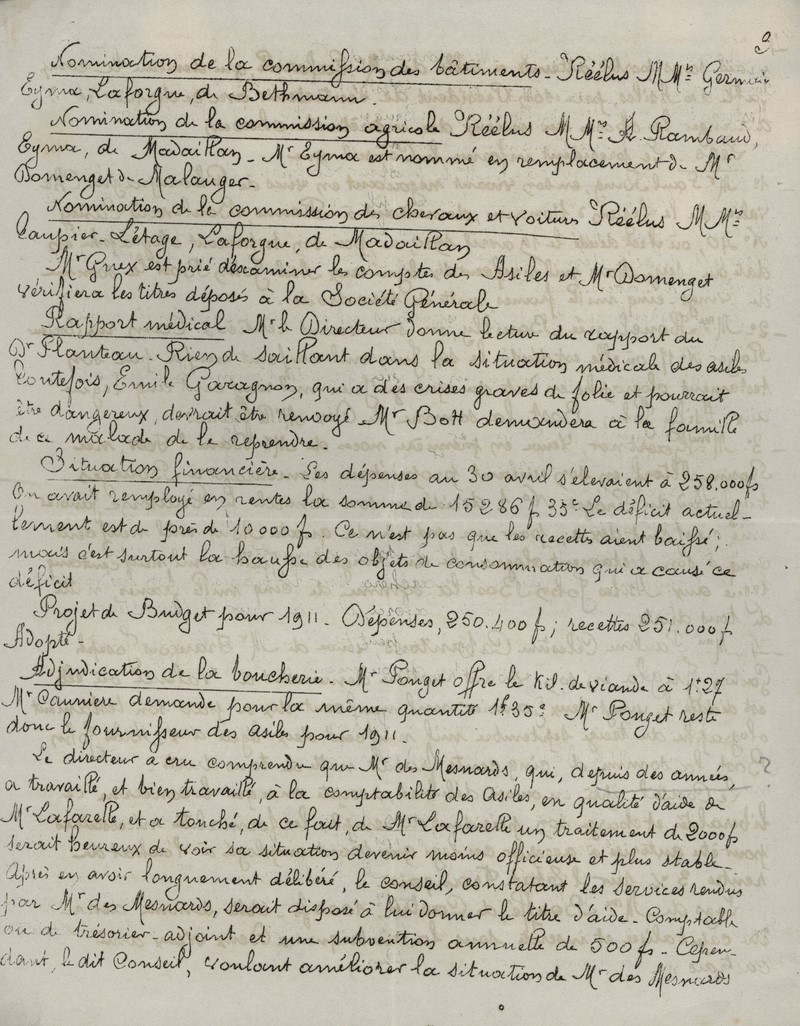 9
Nomination de la commission des bâtiments - Réélus MMrs Germain
Eyma, Laforgue, de Bethmann.
Nomination de la commission agricole Réélus MMrs A. Rambaud,
Eyma, de Madaillan - Mr Eyma est nommé en remplacement de Mr
Domenget de Malauger -
Nomination de la commission des chevaux et voitures Réélus MMrs
Paupier - Létage, Laforgue, de Madaillan
Mr Guex est prié d'examiner les comptes des Asiles et Mr Domenget
vérifiera les titres déposés à la Société Générale
Rapport médical Mr le Directeur donne lecture du rapport du
Dr Planteau - Rien de saillant dans la situation médicale des asiles
Toutefois, Emile Garagnon, qui a des crises graves de folie et pourrait
être dangereux, devrait être renvoyé Mr Bott demandera à la famille
de ce malade de le reprendre -
Situation financière - Les dépenses au 30 avril s'élevaient à 258.000 f
On avait remployé en rentes la somme de 15286 f 35 c Le déficit actuel-
lement est de près de 10 000 f. Ce n'est pas que les recettes aient baissé ;
mais c'est surtout la hausse des objets de consommation qui a causé ce
déficit
Projet de Budget pour 1911 - Dépenses, 250.400 f ; recettes 251.000 f
Adopté -
Adjudication de la boucherie - Mr Pouget offre le Kil. de viande à 1f27
Mr Caunière demande pour la même quantité 1f.35c Mr Pouget reste
donc le fournisseur des asiles pour 1911 -
Le directeur a cru comprendre que Mr des Mesnards, qui, depuis des années, ?
a travaillé, et bien travaillé, à la comptabilité des Asiles, en qualité d'aide de
Mr Lafarelle, et a touché, de ce fait, de Mr Lafarelle un traitement de 2000 f
serait heureux de voir sa situation devenir moins officieuse et plus stable -
Après en avoir longuement délibéré, le conseil, constatant les services rendus
par Mr des Mesnards, serait disposé à lui donner le titre d'aide - Comptable
ou de trésorier - adjoint et une subvention annuelle de 500 fs - Cepen-
dant, le dit Conseil, voulant améliorer la situation de Mr des Mesnards